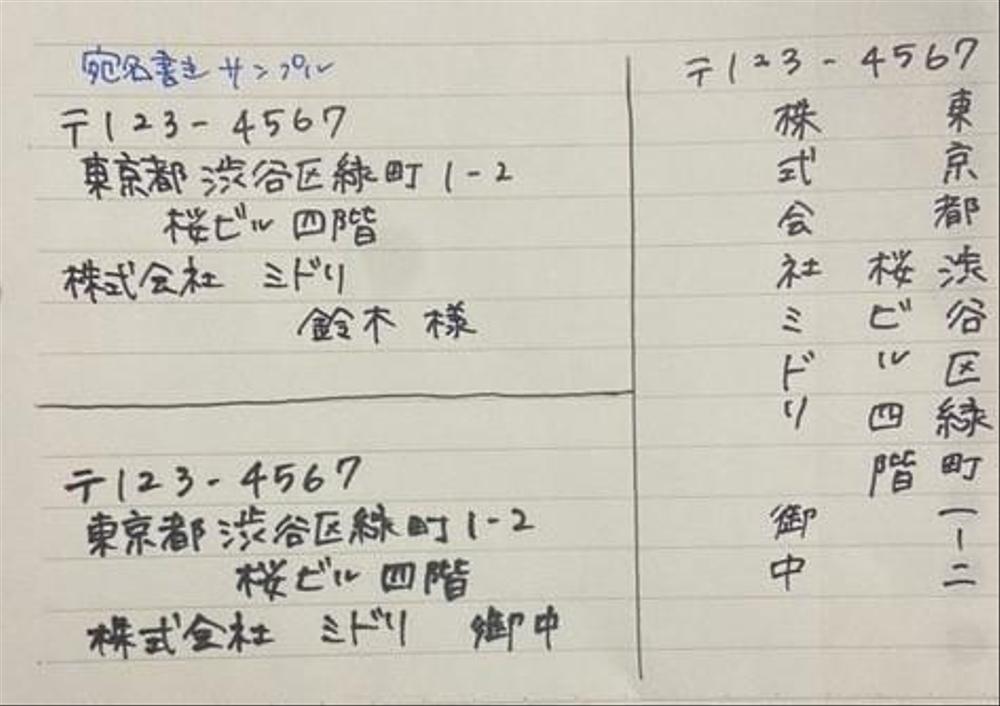 宛名書きサンプル
〒123-4567
東京都渋谷区緑町1-2
桜ビル 四階
株式会社 ミドリ
鈴木 様
〒123-4567
東京都渋谷区緑町1-2
桜ビル 四階
株式会社 ミドリ 御中
〒123-4567
東京都渋谷区緑町一ー二
桜ビル四階
株式会社ミドリ 御中